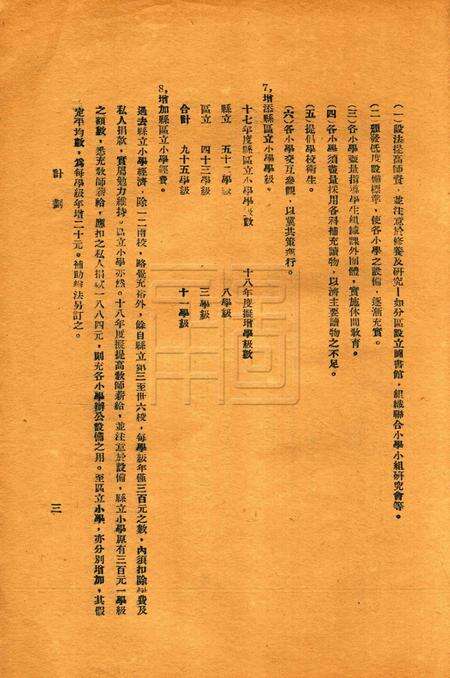 (一)設法提高師資,並注意於修養及研究—如分區設立圖書館,組織聯合小學小組研究會等。
(二)頒發低度設備標準,使各小學之設備,逐漸充實。
(三)各小學盡量指導學生組織課外團體,實施休閒教育。
(四)各小學須盡量採用各科補充讀物,以濟主要讀物之不足。
(五)提倡學校衛生。
(六)各小學交互參觀,以冀其策進行。
7,增添縣區立小學學級。
十七年度縣區立小學學級數 十八年度擬增學級數
縣立 五十二學級 八學級
區立 四十三學級 三學級
合計 九十五學級 十一學級
8,增加縣區立小學經費。
過去縣立小學經濟,除一二南校,略覺充裕外,餘自縣立第三至世六校,每學級年僅三百元之數,內須扣除 費及
私人捐款,實屬勉力維持。區立小學亦然。十八年度擬提高教師薪給,並注意於設備,縣立小學原有三百元一學級
之額數,悉充教師薪給,應扣之私人捐款一八八四元,則充各小學辦公設備之用。至區立小學,亦分別增加,其假
定平均數,為每學級年增二十元。補助辦法另訂之。
計劃
三